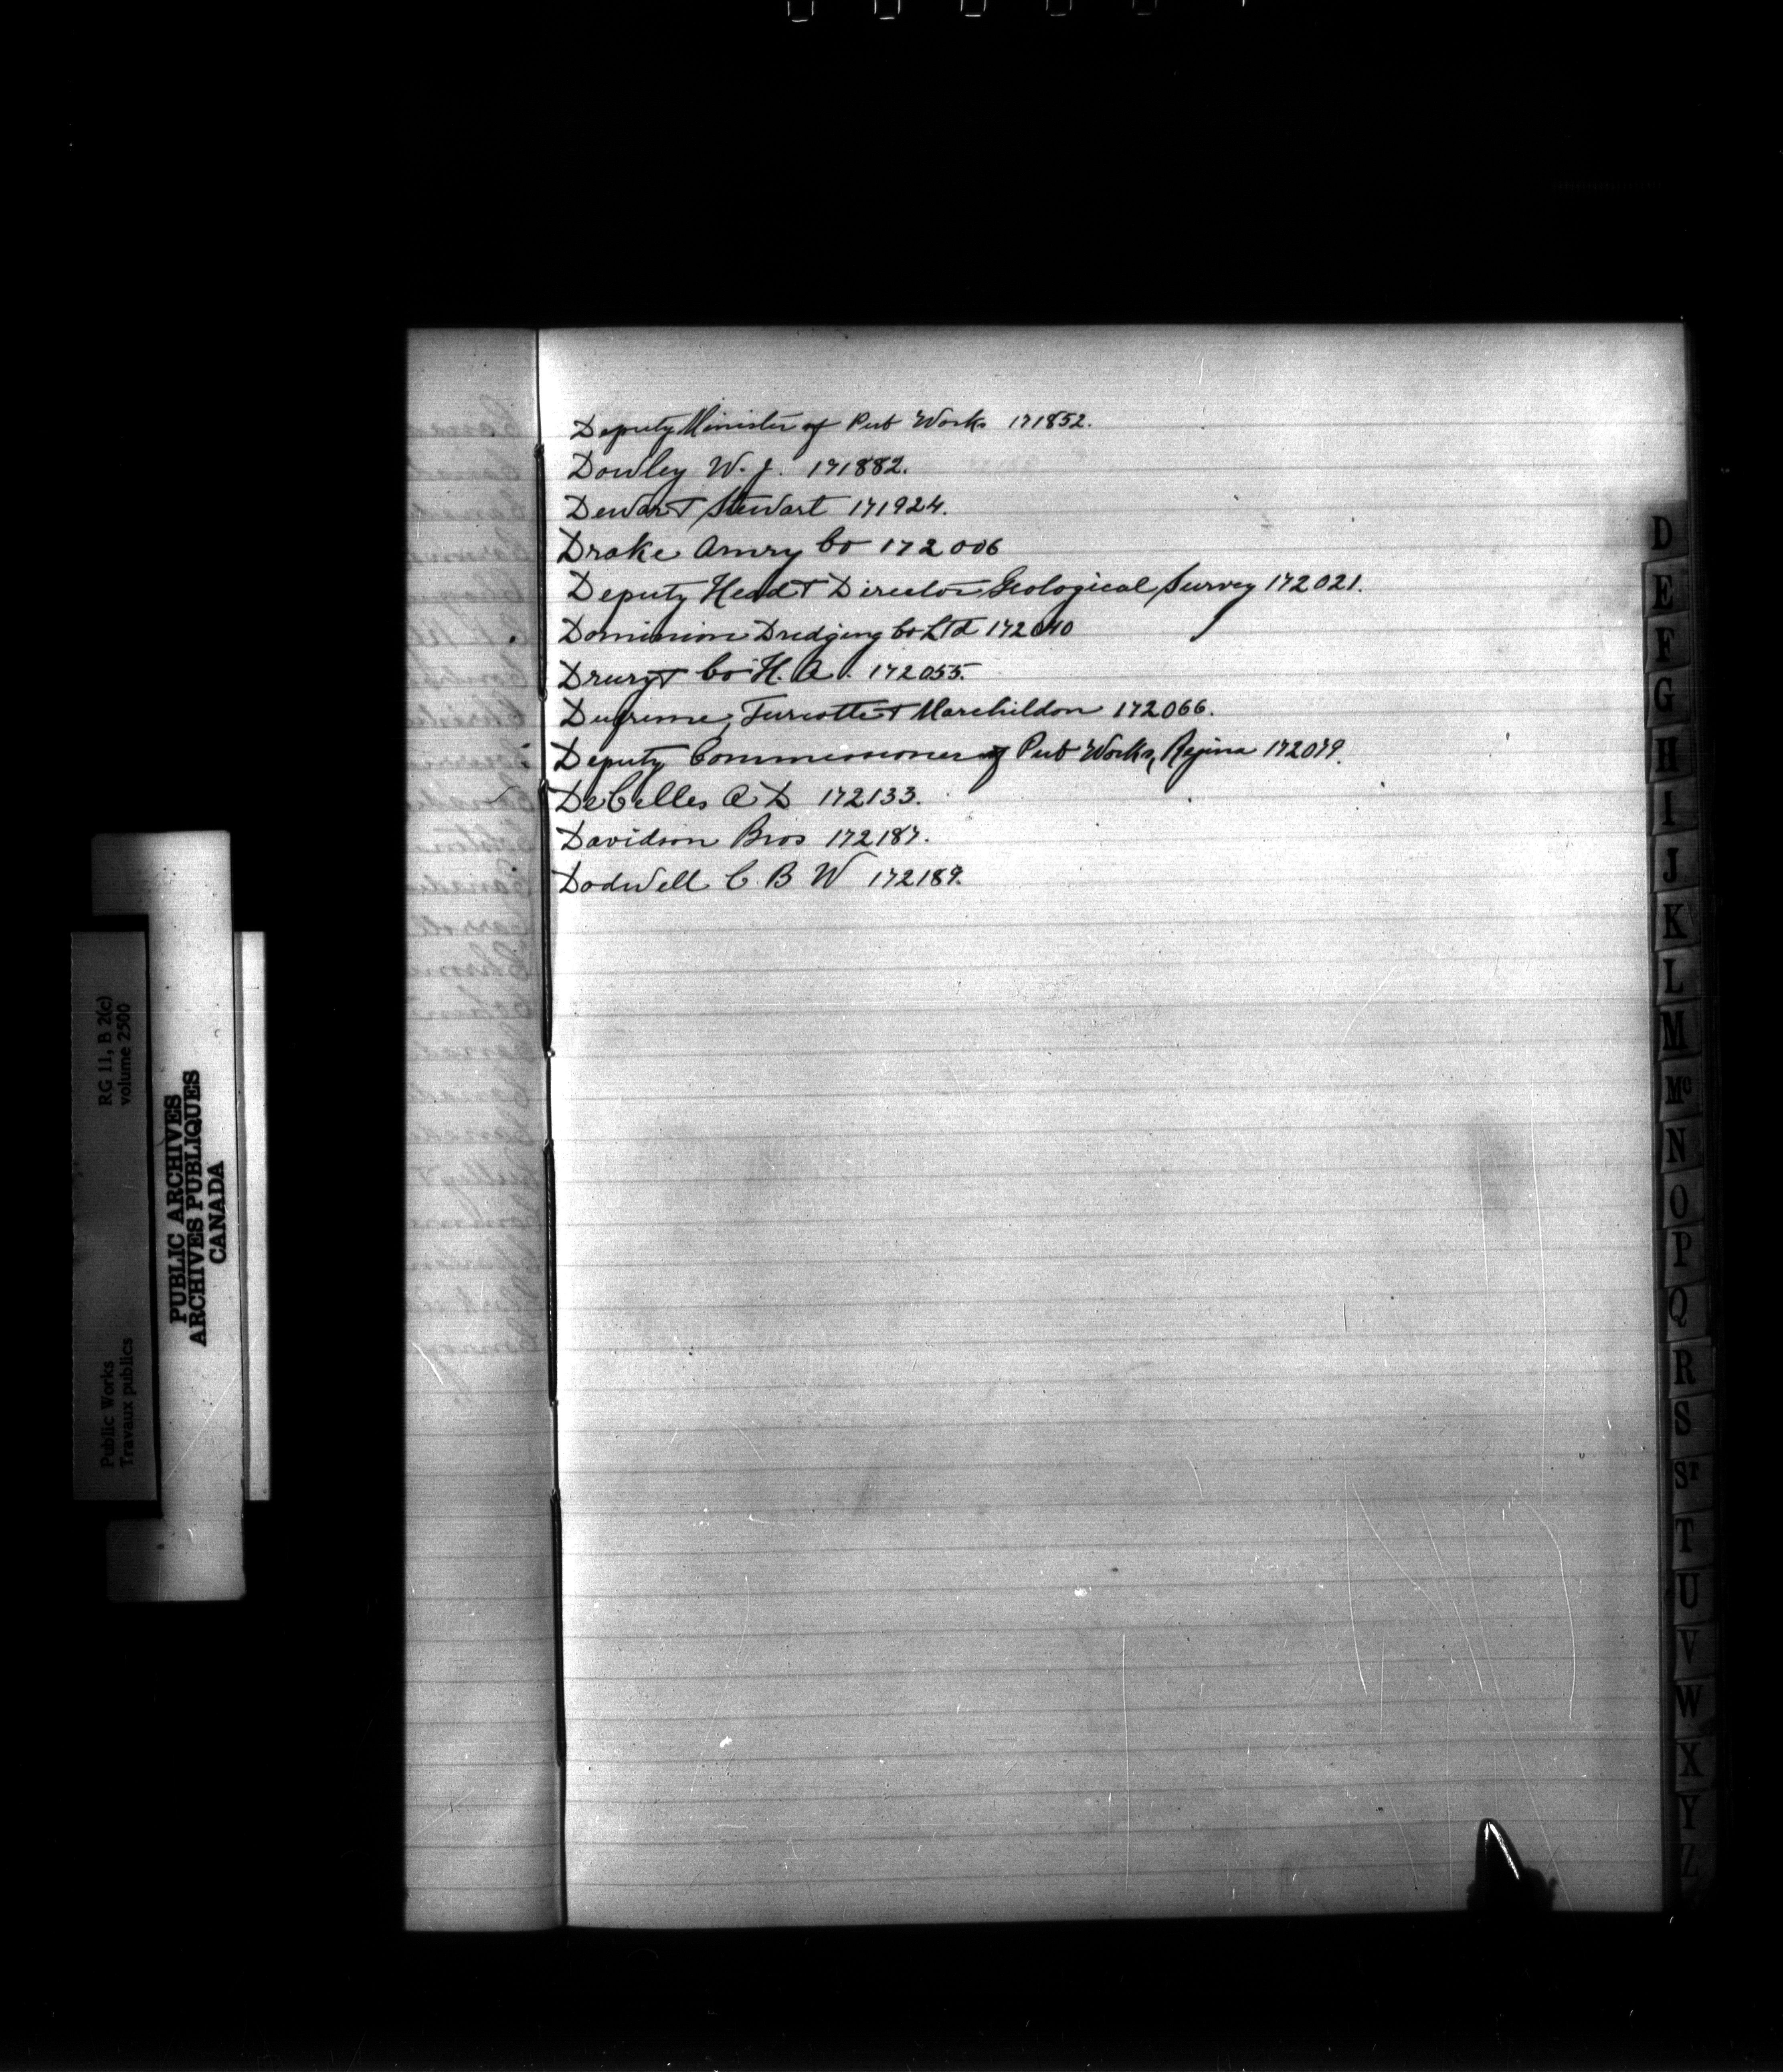 Deputy Minister of Pub Works 171852.
Dowley W. J. 171882.
Dewar & Stewart 171924.
Drake Amry Co 172006
Deputy Head & Director Geological Survey 172021.
Dominion Dredging Co Ltd 172040
Drury & Co H. A. 172055.
Dufresne, Turcotte & Marchildon 172066.
Deputy Commissioner of Pub Works, Regina 172079.
DeCelles A D 172133.
Davidson Bros 172187.
Dodwell C. B W 172189.
D
E
F
G
H
I
J
K
L
M
Mc
N
O
P
Q
R
S
ST
T
U
V
W
X
Y
Z
Public Works
Travaux publics
RG 11, B 2(c)
volume 2500
PUBLIC ARCHIVES
ARCHIVES PUBLIQUES
CANADA